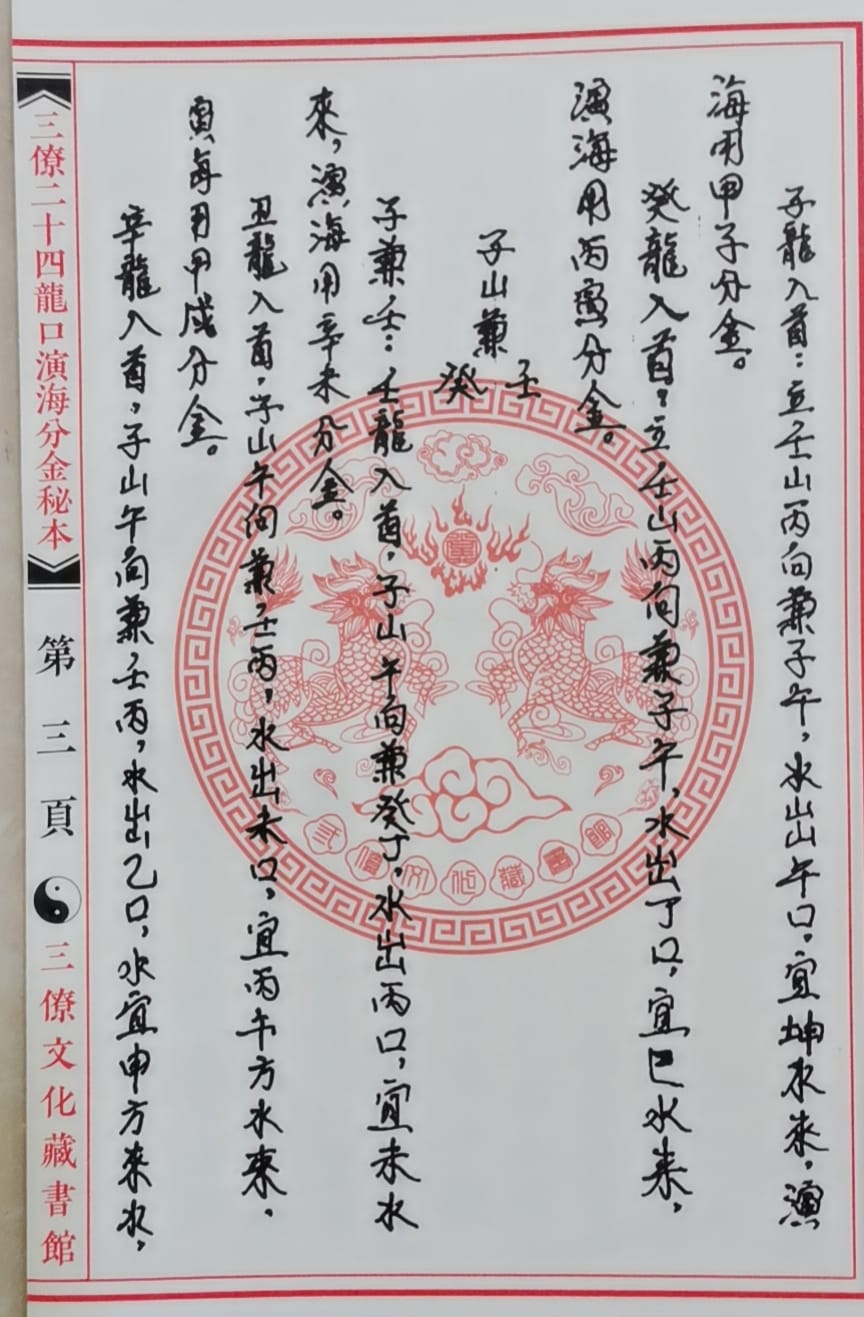 子龍入首：立壬山丙向兼子午，水出午口。宜坤水來，演
海用甲子分金。
癸龍入首：立壬山丙向兼子午，水出丁口，宜巳水来，
演海用丙寅分金。
子山兼壬癸
子兼壬：壬龍入首，子山午向兼癸丁，水出丙口，宜未水
來，演海用辛未分金。
丑龍入首，子山午向兼壬丙，水出未口，宜丙午方水來，
寅每用甲戌分金。
辛龍入首，子山午向兼壬丙，水出乙口，水宜申方來水，
三僚二十四龍口演海分金秘本
第三頁
三僚文化藏書館
文化藏書館